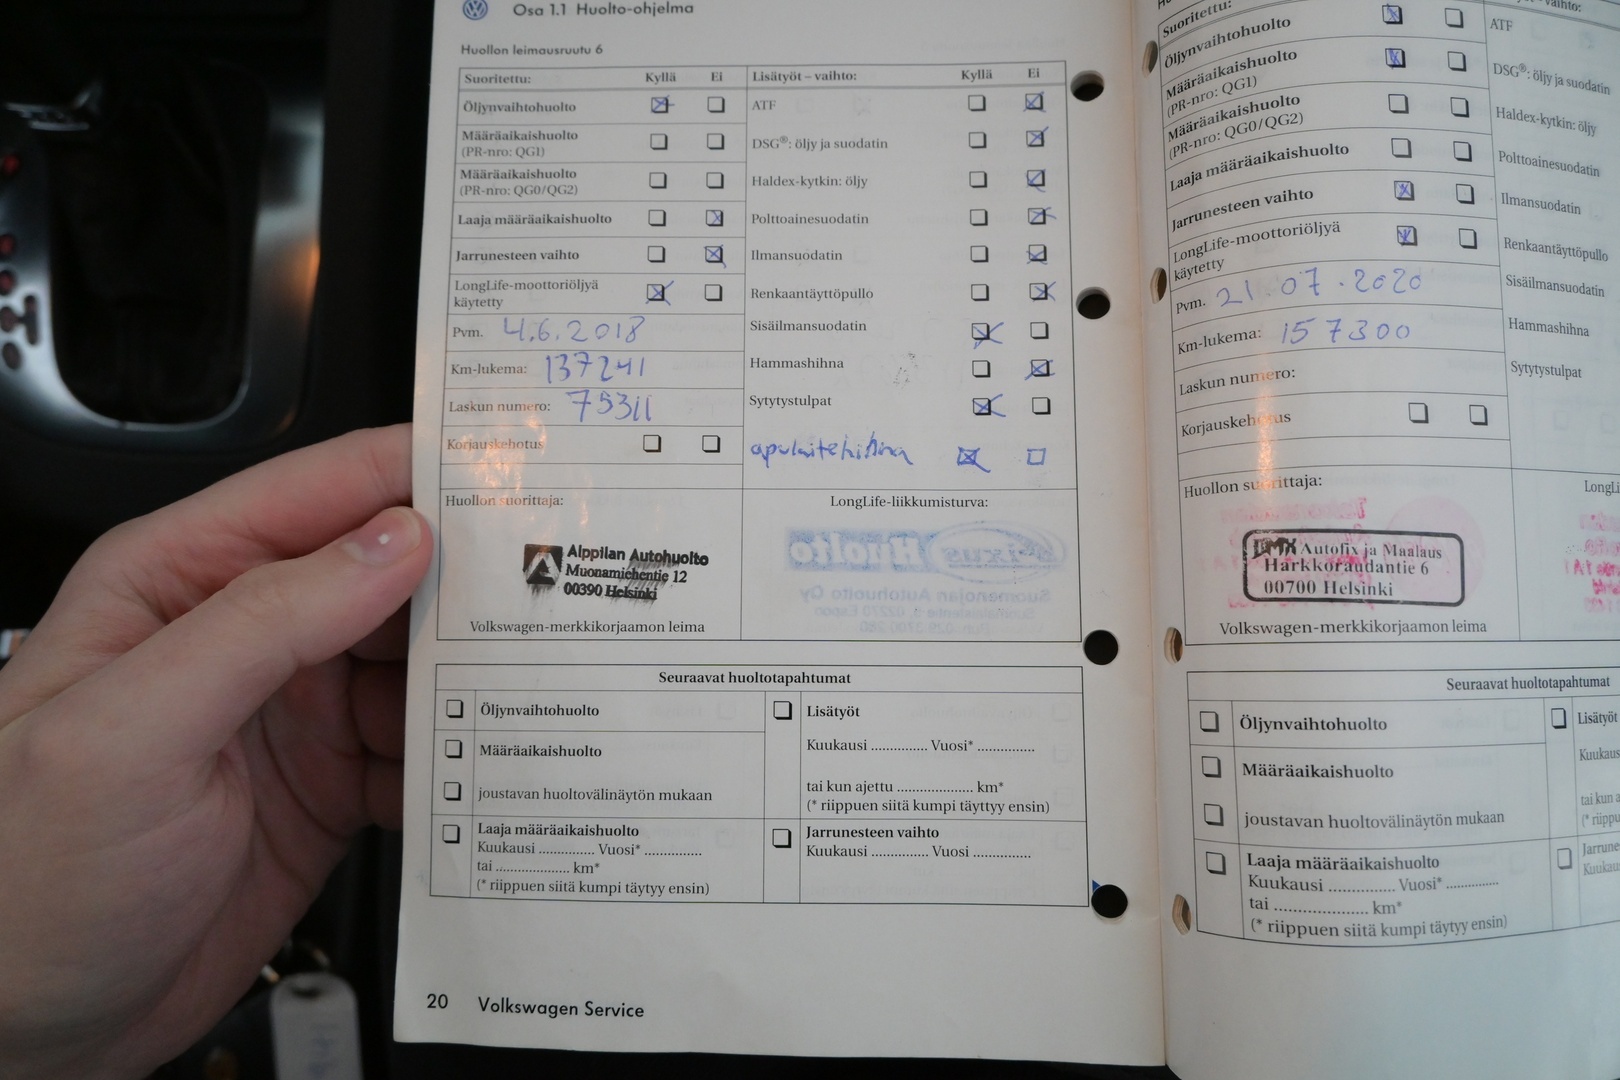 Osa 1.1 Huolto-ohjelma
Huollon leimausruutu 6
Suoritettu: Kyllä Ei
Öljynvaihtohuolto
Määräaikaishuolto
(PR-nro: QG1)
Määräaikaishuolto
(PR-nro: QG0/QG2)
Laaja määräaikaishuolto
Jarrunesteen vaihto
LongLife-moottoriöljyä
käytetty
Pvm. 4.6.2018
Km-lukema: 137241
Laskun numero: 75311
Korjauskehotus
Lisätyöt – vaihto: Kyllä Ei
ATF
DSG®: öljy ja suodatin
Haldex-kytkin: öljy
Polttoainesuodatin
Ilmansuodatin
Renkaantäyttöpullo
Sisäilmansuodatin
Hammashihna
Sytytystulpat
apulaitehihna
Huollon suorittaja:
Alppilan Autohuolto
Muonamiehentie 12
00390 Helsinki
Volkswagen-merkkikorjaamon leima
LongLife-liikkumisturva:
Seuraavat huoltotapahtumat
Öljynvaihtohuolto
Määräaikaishuolto
joustavan huoltovälinäytön mukaan
Laaja määräaikaishuolto
Kuukausi .............. Vuosi* ..............
tai .................... km*
(* riippuen siitä kumpi täytyy ensin)
Lisätyöt
Kuukausi .............. Vuosi* ..............
tai kun ajettu .................... km*
(* riippuen siitä kumpi täyttyy ensin)
Jarrunesteen vaihto
Kuukausi .............. Vuosi ..............
20 Volkswagen Service
Suoritettu:
Öljynvaihtohuolto
Määräaikaishuolto
(PR-nro: QG1)
Määräaikaishuolto
(PR-nro: QG0/QG2)
Laaja määräaikaishuolto
Jarrunesteen vaihto
LongLife-moottoriöljyä
käytetty
Pvm. 21.07.2020
Km-lukema: 157300
Laskun numero:
Korjauskehotus
vaihto:
ATF
DSG®: öljy ja suodatin
Haldex-kytkin: öljy
Polttoainesuodatin
Ilmansuodatin
Renkaantäyttöpullo
Sisäilmansuodatin
Hammashihna
Sytytystulpat
Huollon suorittaja:
Autofix ja Maalaus
Harkkoraudantie 6
00700 Helsinki
Volkswagen-merkkikorjaamon leima
LongLi
Seuraavat huoltotapahtumat
Öljynvaihtohuolto
Määräaikaishuolto
joustavan huoltovälinäytön mukaan
Laaja määräaikaishuolto
Kuukausi .............. Vuosi* ..............
tai .................... km*
(* riippuen siitä kumpi täytyy ensin)
Lisätyöt
Kuukaus
tai kun a
(* riippu
Jarrune
Kuukau